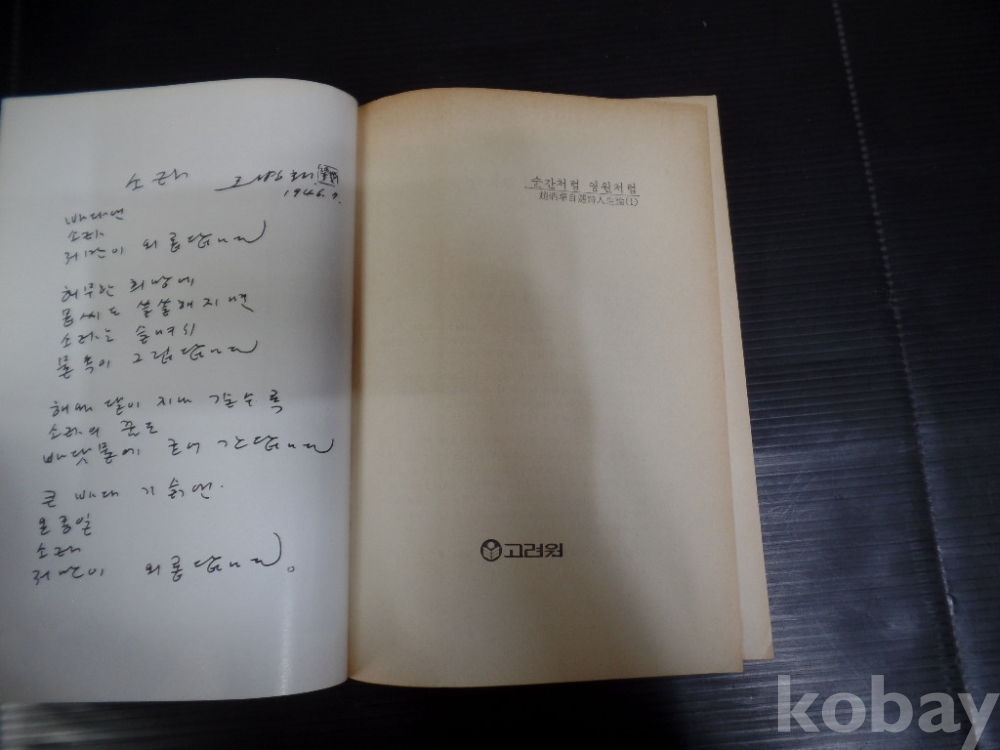 소라 조병화
1946.
바다엔
소라
저만이 외롭답니다
허무한 희망에
몹씨도 쓸쓸해지면
소라는 슬며시
물속이 그립답니다
해와 달이 지나 갈수록
소라의 꿈도
바닷물에 굳어 간답니다
큰 바다 기슭엔.
온종일
소라
저만이 외롭답니다。
순간처럼 영원처럼
趙炳華自選詩人生論(1)
고려원
kobay